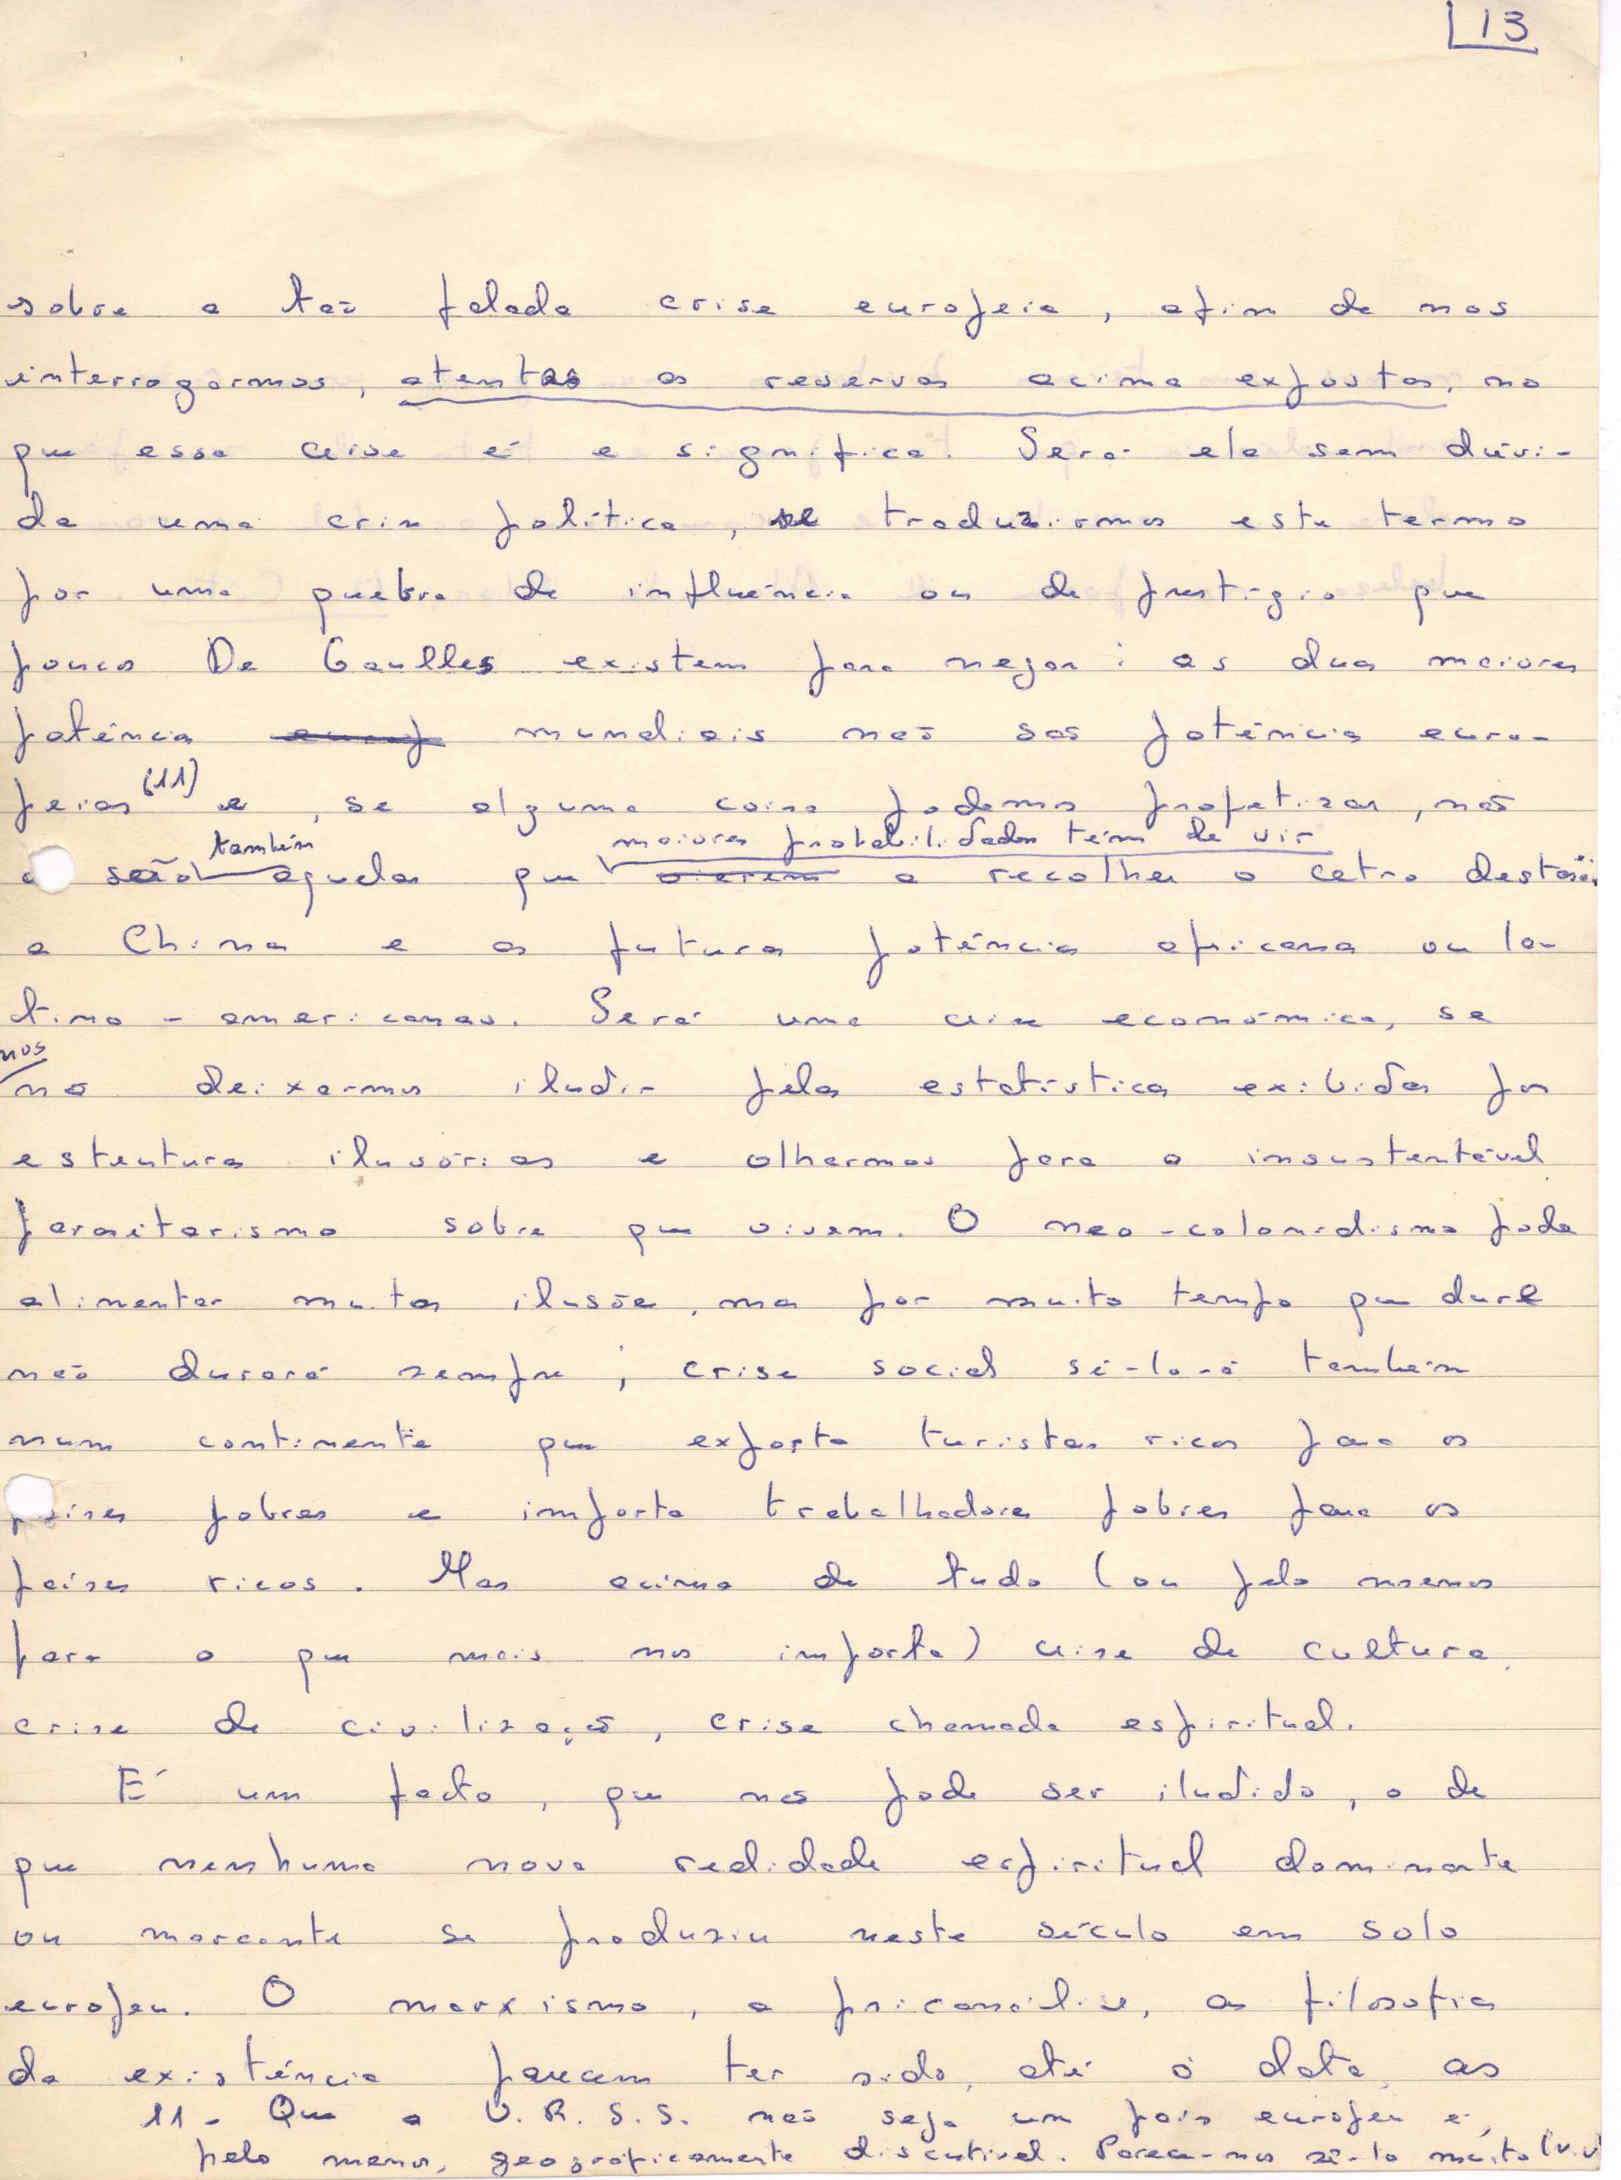 13
sobre a tão falada crise europeia, afim de nos
interrogarmos, atentas as reservas acima expostas, no
que essa crise é e significa. Será ela sem dúvi-
da uma crise política, se traduzirmos este termo
por uma quebra de influência ou de prestígio que
poucos De Gaulles existem para negar: as duas maiores
potências mundiais não são potências euro-
peias (11) e, se alguma coisa podemos profetizar, não
também maiores probabilidades têm de vir
o serão aquelas que vierem a recolher o cetro destas:
a China e as futuras potências africanas ou la-
tino-americanas. Será uma crise económica, se
nos
não deixarmos iludir pelas estatísticas exibidas por
estruturas ilusórias e olharmos para o insustentável
parasitarismo sobre que vivem. O neo-colonialismo pode
alimentar muitas ilusões, mas por muito tempo que dure
não durará sempre; crise social sê-lo-á também
num continente que exporta turistas ricos para os
países pobres e importa trabalhadores pobres para os
países ricos. Mas acima de tudo (ou pelo menos
para o que mais nos importa) crise de cultura,
crise de civilização, crise chamada espiritual.
É um facto, que não pode ser iludido, o de
que nenhuma nova realidade espiritual dominante
ou marcante se produziu neste século em solo
europeu. O marxismo, a psicanálise, as filosofias
da existência parecem ter sido, até à data, as
11 - Que a U.R.S.S. não seja um país europeu é,
pelo menos, geograficamente discutível. Parece-nos sê-lo muito (v.v